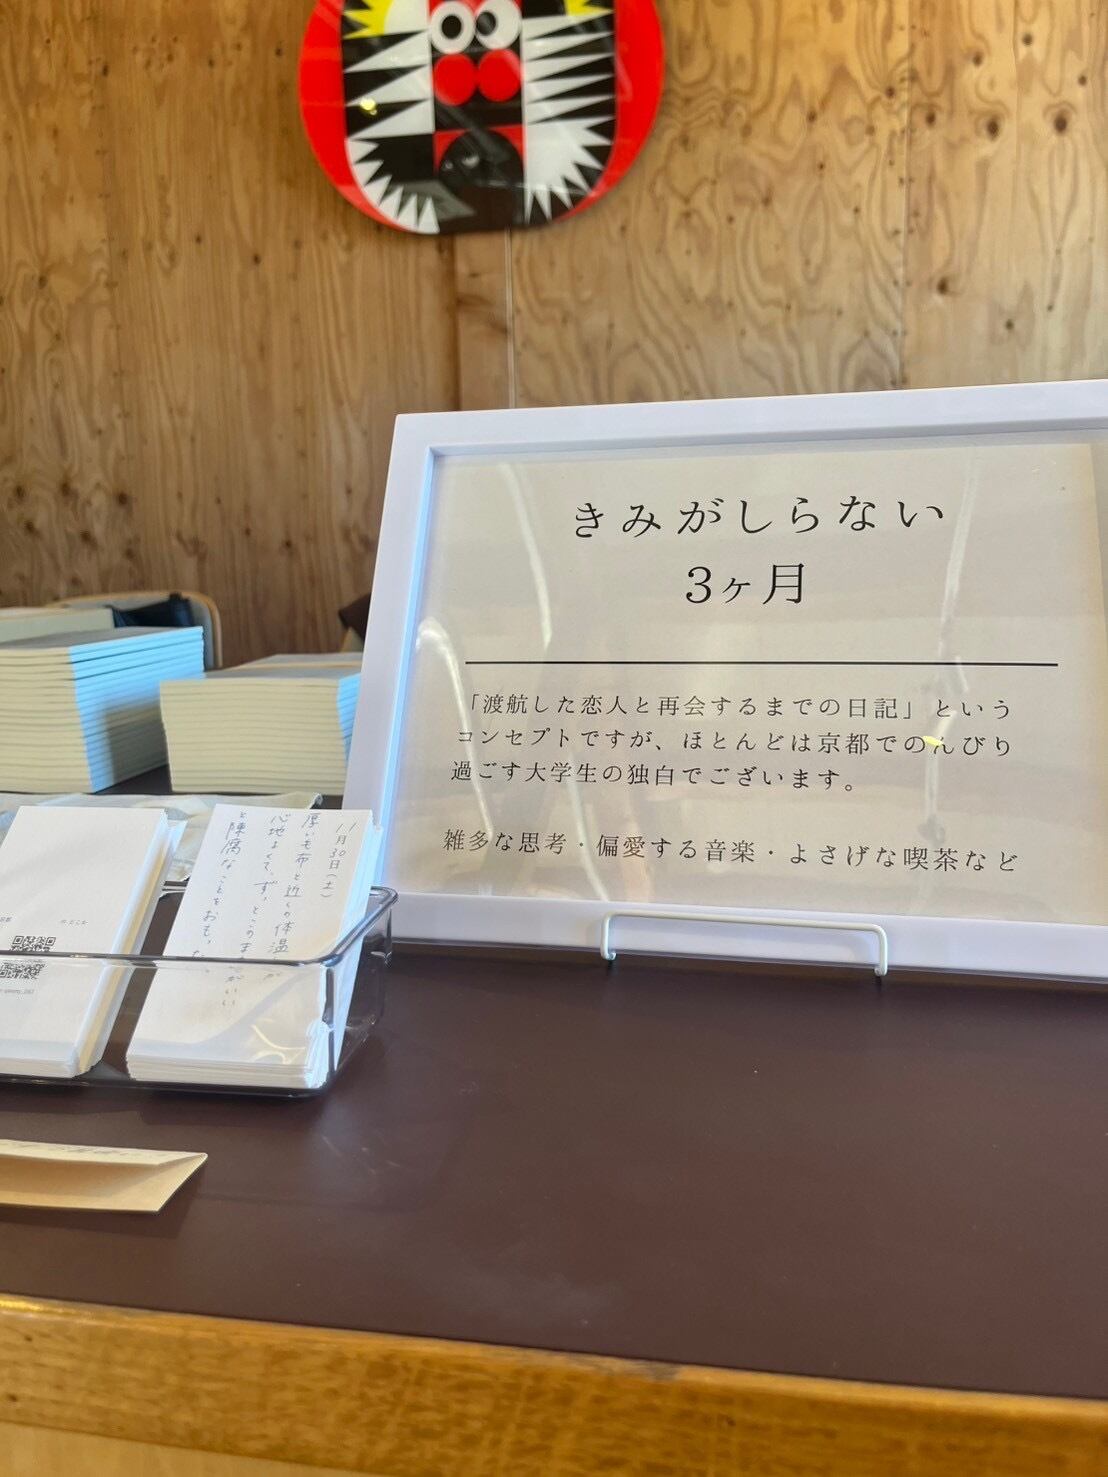 きみがしらない
3ヶ月
「渡航した恋人と再会するまでの日記」という
コンセプトですが、ほとんどは京都でのんびり
過ごす大学生の独白でございます。
雑多な思考・偏愛する音楽・よさげな喫茶など
11月30日(土)
厚い毛布と近くの体温が
心地よくて、ずっとこのままがいい
と陳腐なことをおもった